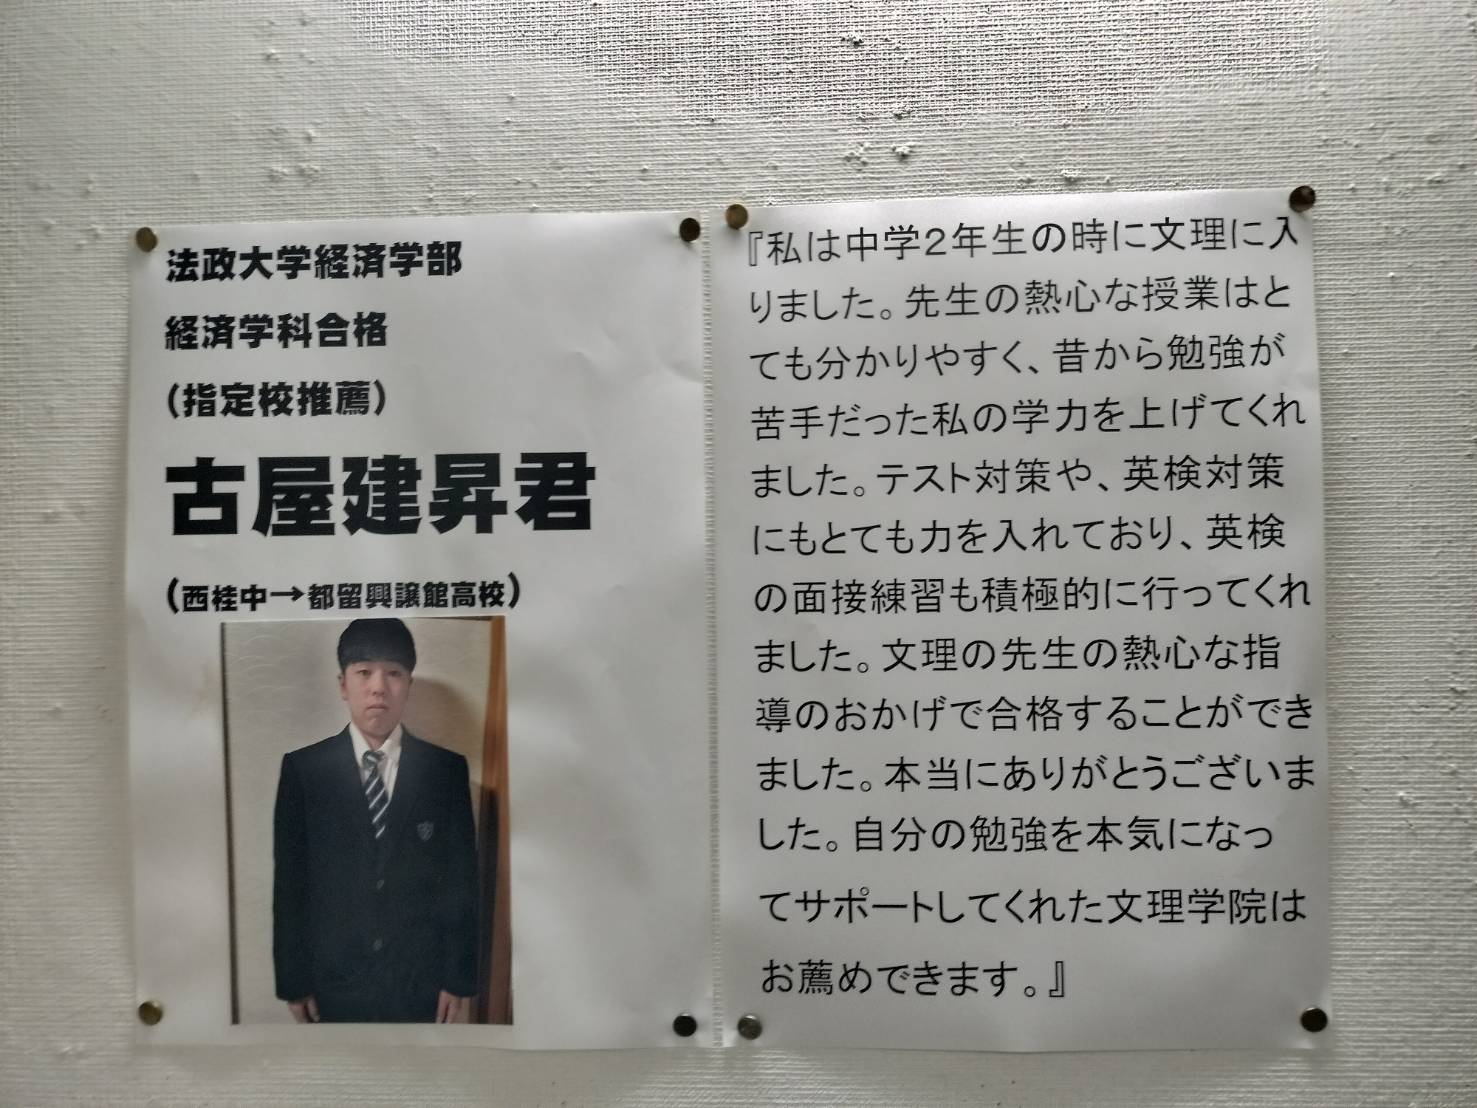 法政大学経済学部
経済学科合格
(指定校推薦)
古屋建昇君
(西桂中→都留興譲館高校)
『私は中学2年生の時に文理に入
りました。先生の熱心な授業はと
ても分かりやすく、昔から勉強が
苦手だった私の学力を上げてくれ
ました。テスト対策や、英検対策
にもとても力を入れており、英検
の面接練習も積極的に行ってくれ
ました。文理の先生の熱心な指
導のおかげで合格することができ
ました。本当にありがとうございま
した。自分の勉強を本気になっ
てサポートしてくれた文理学院は
お薦めできます。』